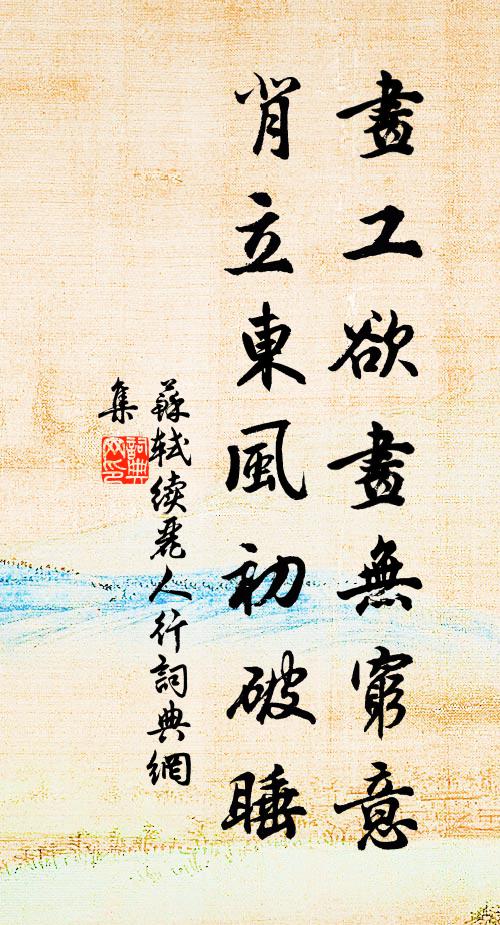 畫工欲畫無窮意
背立東風初破睡
蘇軾續麗人行詞典網
集
詞典
网印